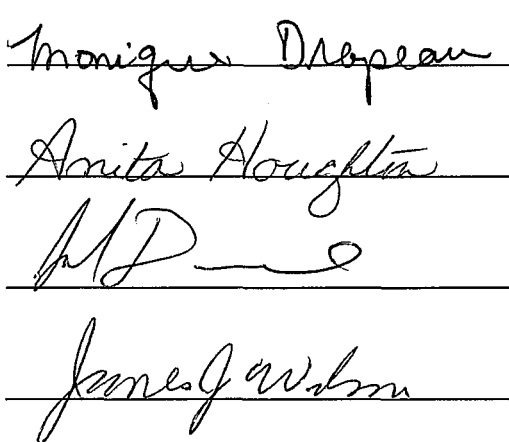 Monique Drapeau
Anita Houghton
James J Wilson